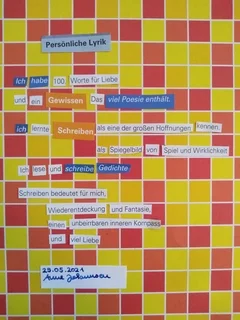 Persönliche Lyrik
Ich habe 100 Worte für Liebe
und ein Gewissen Das viel Poesie enthält.
ich lernte Schreiben als eine der großen Hoffnungen kennen
als Spiegelbild von Spiel und Wirklichkeit
Ich lese und schreibe Gedichte
Schreiben bedeutet für mich,
Wiederentdeckung und Fantasie,
einen unbeirrbaren inneren Kompass
und viel Liebe
29.05.2021